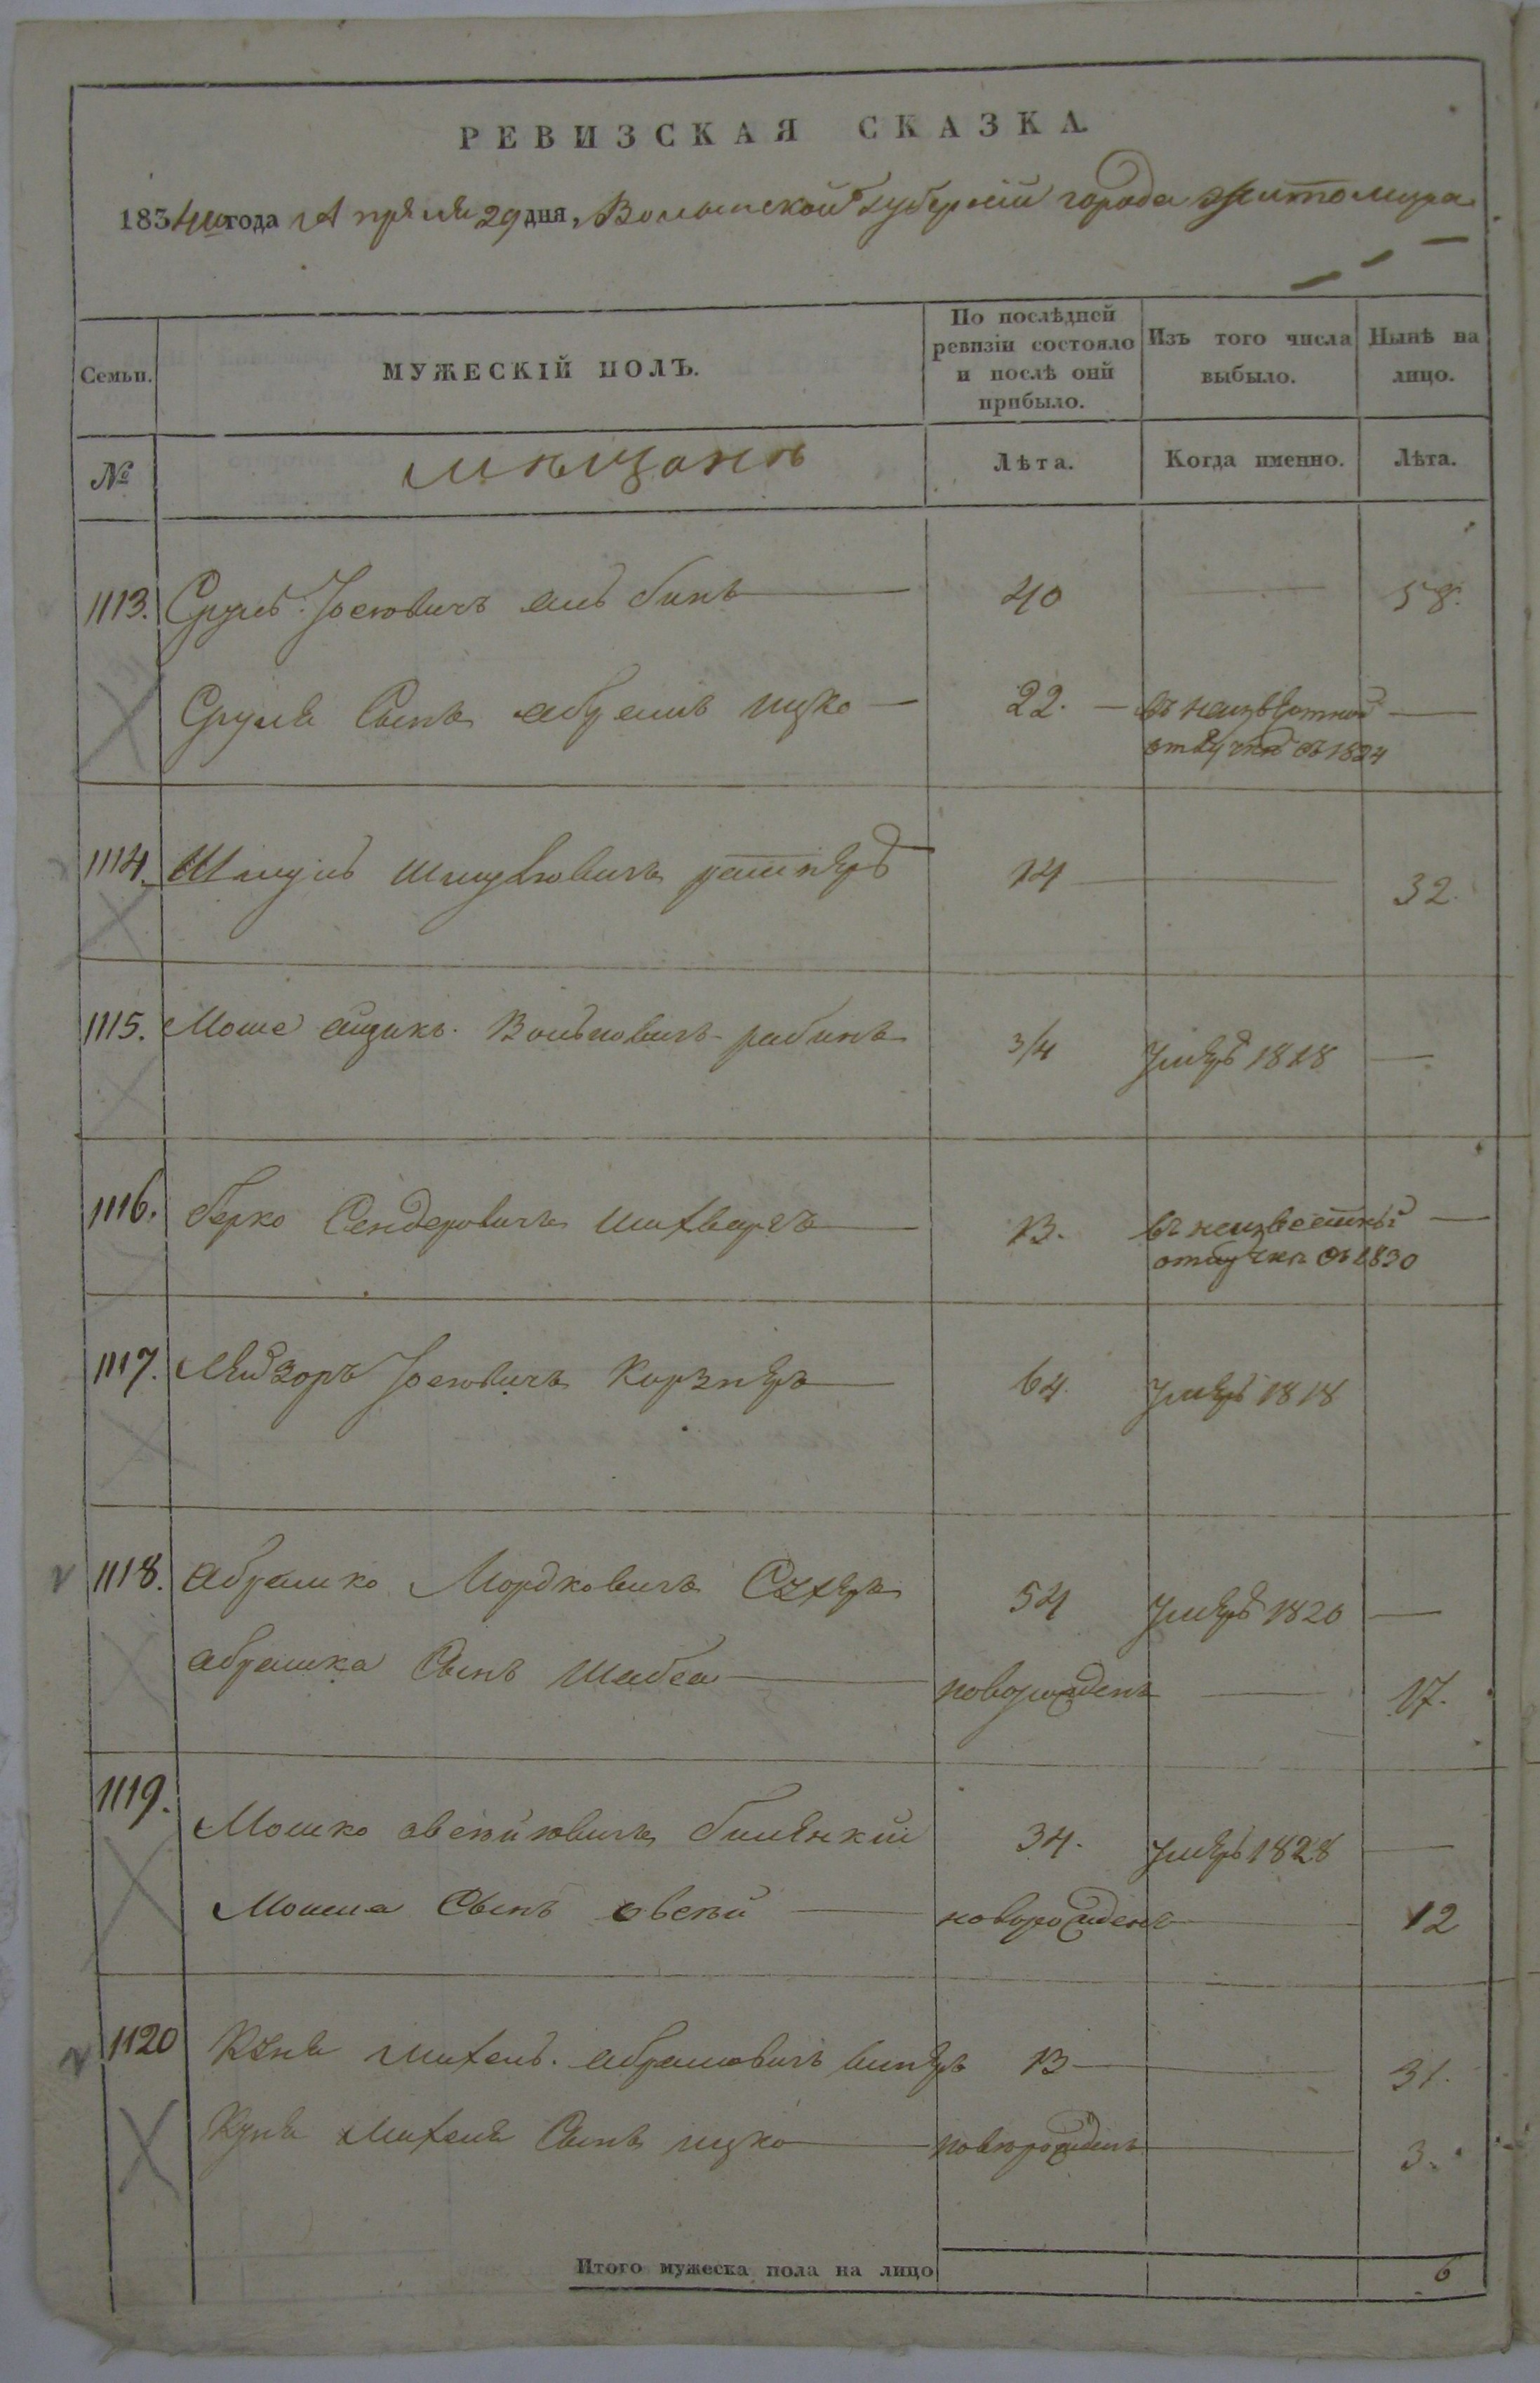 РЕВИЗСКАЯ СКАЗКА
1834го года Апреля 29 дня, Волынской Губерніи города Житомира
Семьи.
МУЖЕСКІЙ ПОЛЪ.
По послѣдней ревизіи состояло и послѣ оной прибыло.
Изъ того числа выбыло.
Нынѣ на лицо.
№
мѣщанѣ
Лѣта.
Когда именно.
Лѣта.
1113. Сруль Іосіовичъ 40 58.
Сруля Сынъ Абрамъ Ицко 22. въ неизвѣстной
отлучкѣ съ 1824
1114. Шмуль Шмулiовичъ 14 32.
1115. Моше Айзикъ Волвковичъ рабинъ 3/4 умеръ 1818
1116. Берко Сендеровичъ Шихваргъ 13. въ неизвестной
отлучкѣ съ 1830
1117. Лейзоръ Іосіовичъ Корзнеръ 64. умеръ 1818
1118. Абрамко Мордковичъ 54 умеръ 1820
Абрамка Сынъ Шабса новорожденъ 17.
1119.
Мошко Овсейіовичъ 34. умеръ 1828
Мошка Сынъ Овсей новорожденъ 12
1120 Куна Михель Абрамовичъ Винеръ 13 31.
Куна Михеля Сынъ Ицко новорожденъ 3.
Итого мужеска пола на лицо 6